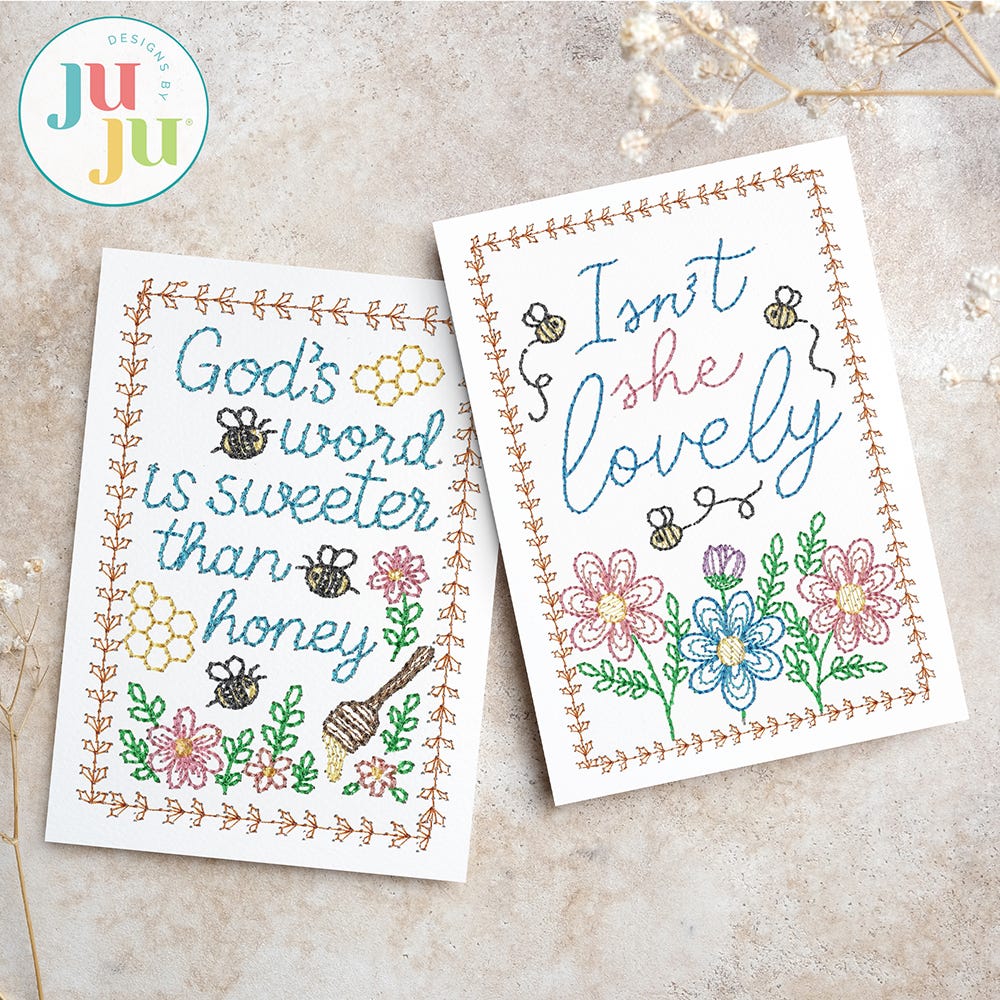 DESIGNS BY
JU
JU®
God's
word
is sweeter
than
honey
Isn't
she
lovely